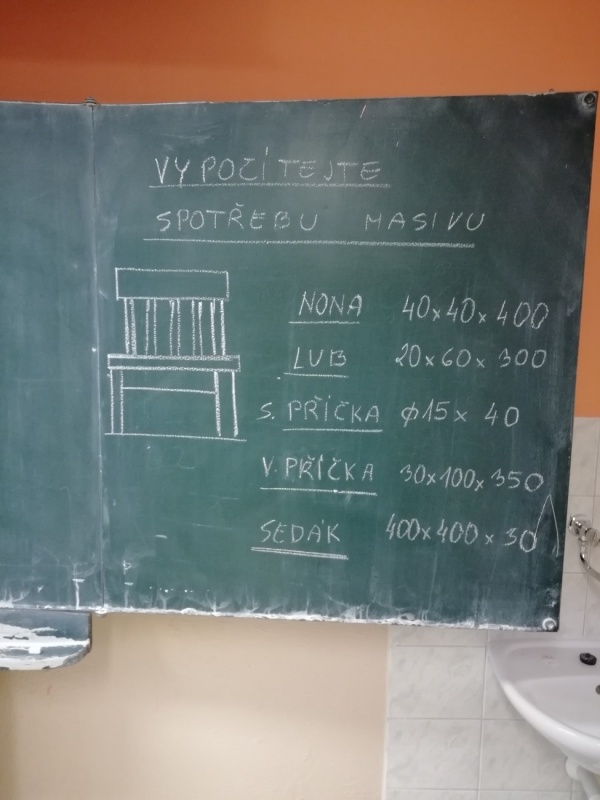 VYPOČÍTEJTE
SPOTŘEBU MASIVU
NOHA 40x40x400
LUB 20x60x300
S. PŘÍČKA ϕ15x 40
V. PŘÍČKA 30x100x350
SEDÁK 400x400x30